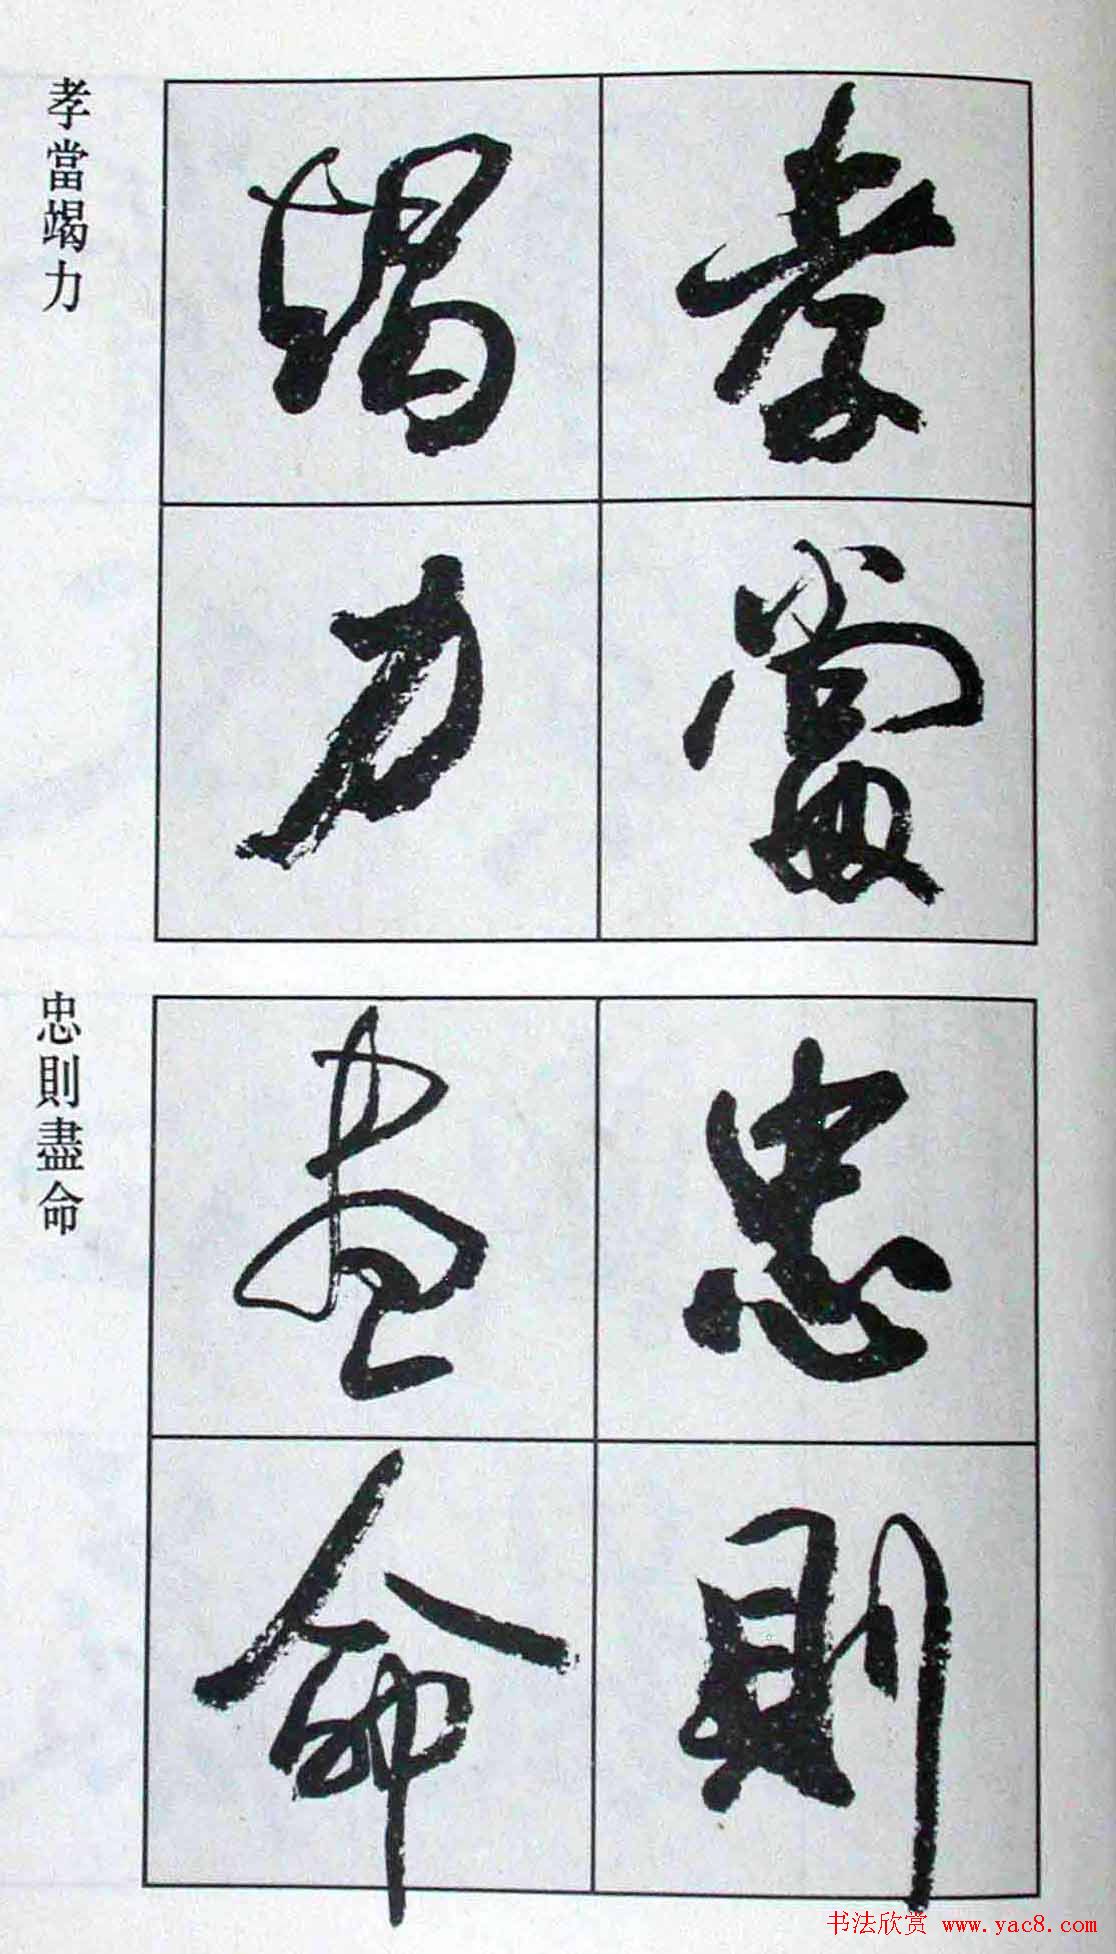 孝當
竭力
孝當竭力
忠則
盡命
忠則盡命
书法欣赏 www.yac8.com